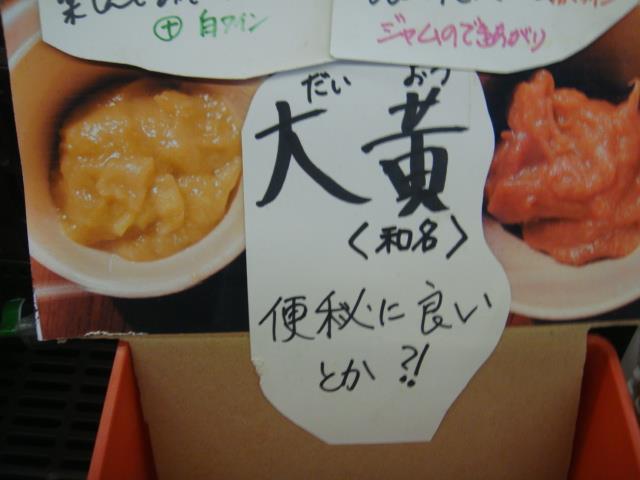 ⊕ 白ワイン
ジャムのできあがり
だい おう
大黄
〈和名〉
便秘に良い
とか?!